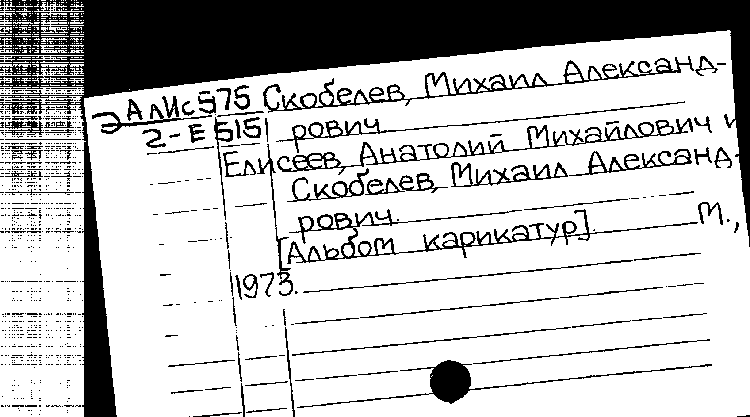 ЭАлИс575 Скобелев, Михаил Александ-
2-Е515 рович
Елисеев, Анатолий Михайлович и
Скобелев, Михаил Александ-
рович.
[Альбом карикатур]. М.,
1973.